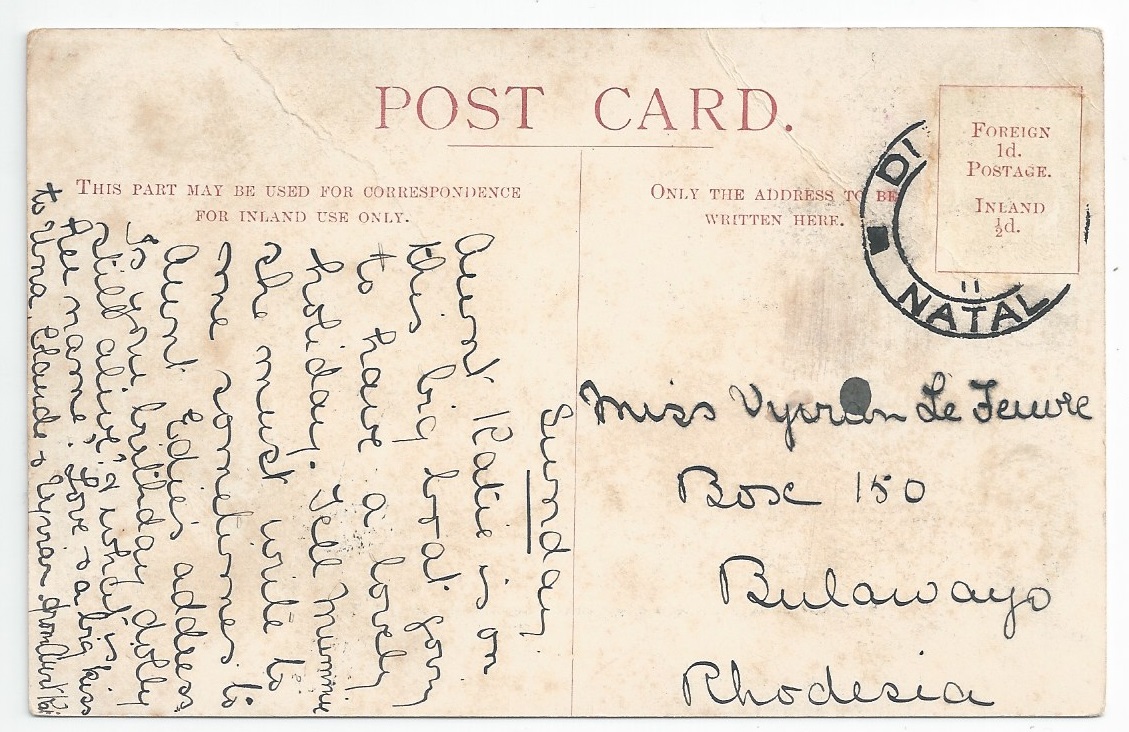 POST CARD.
THIS PART MAY BE USED FOR CORRESPONDENCE
FOR INLAND USE ONLY.
Sunday.
Aunt Katie is on
this big boat going
to have a lovely
holiday. Tell Mummie
she must write to
me sometimes to
Aunt Edie's address.
Is you birthday dolly
still alive? & what is
her name? Love & a big kiss
to Una, Claude & Vyvian from Aunt
ONLY THE ADDRESS TO BE
WRITTEN HERE.
FOREIGN
1d.
POSTAGE.
INLAND
½d.
NATAL
11
Miss Le Feuvre
Box 150
Bulawayo
Rhodesia